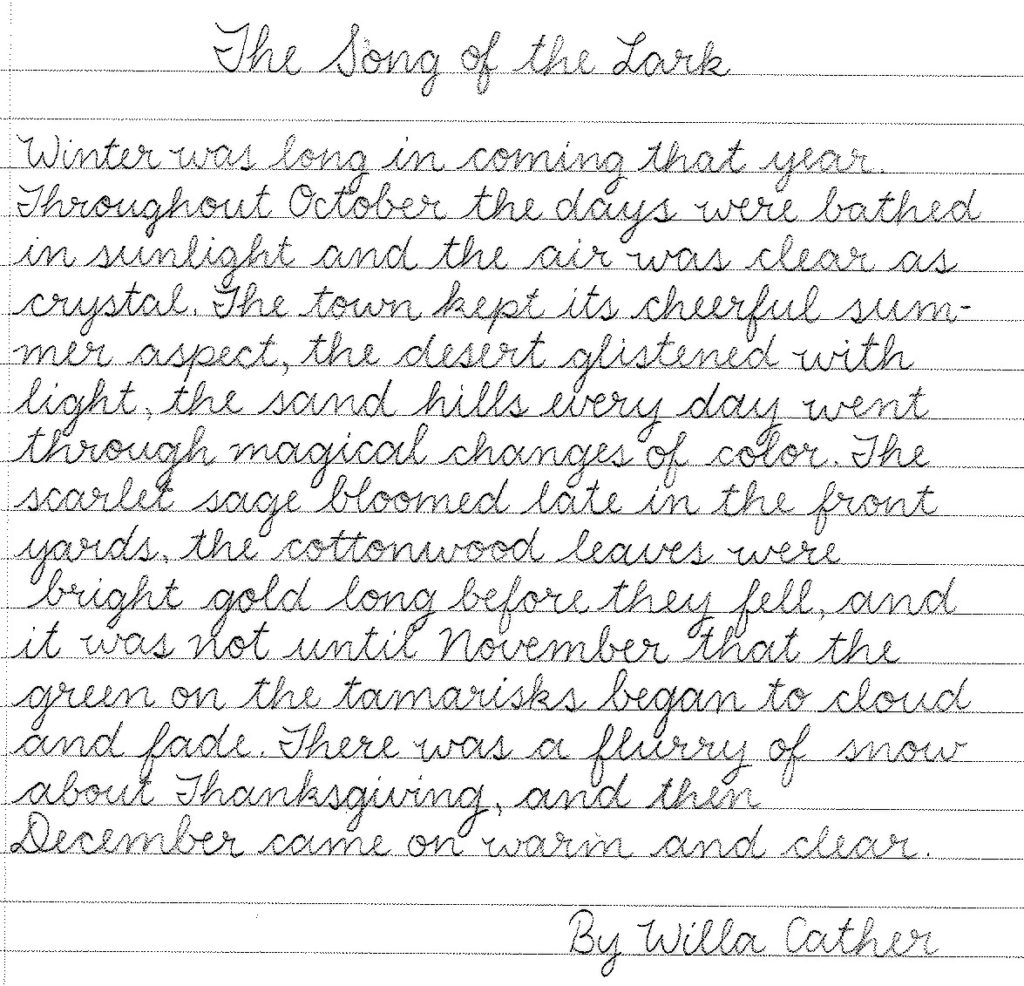 The Song of the Lark
Winter was long in coming that year.
Throughout October the days were bathed
in sunlight and the air was clear as
crystal. The town kept its cheerful sum-
mer aspect, the desert glistened with
light, the sand hills every day went
through magical changes of color. The
scarlet sage bloomed late in the front
yards, the cottonwood leaves were
bright gold long before they fell, and
it was not until November that the
green on the tamarisks began to cloud
and fade. There was a flurry of snow
about Thanksgiving, and then
December came on warm and clear.
By Willa Cather